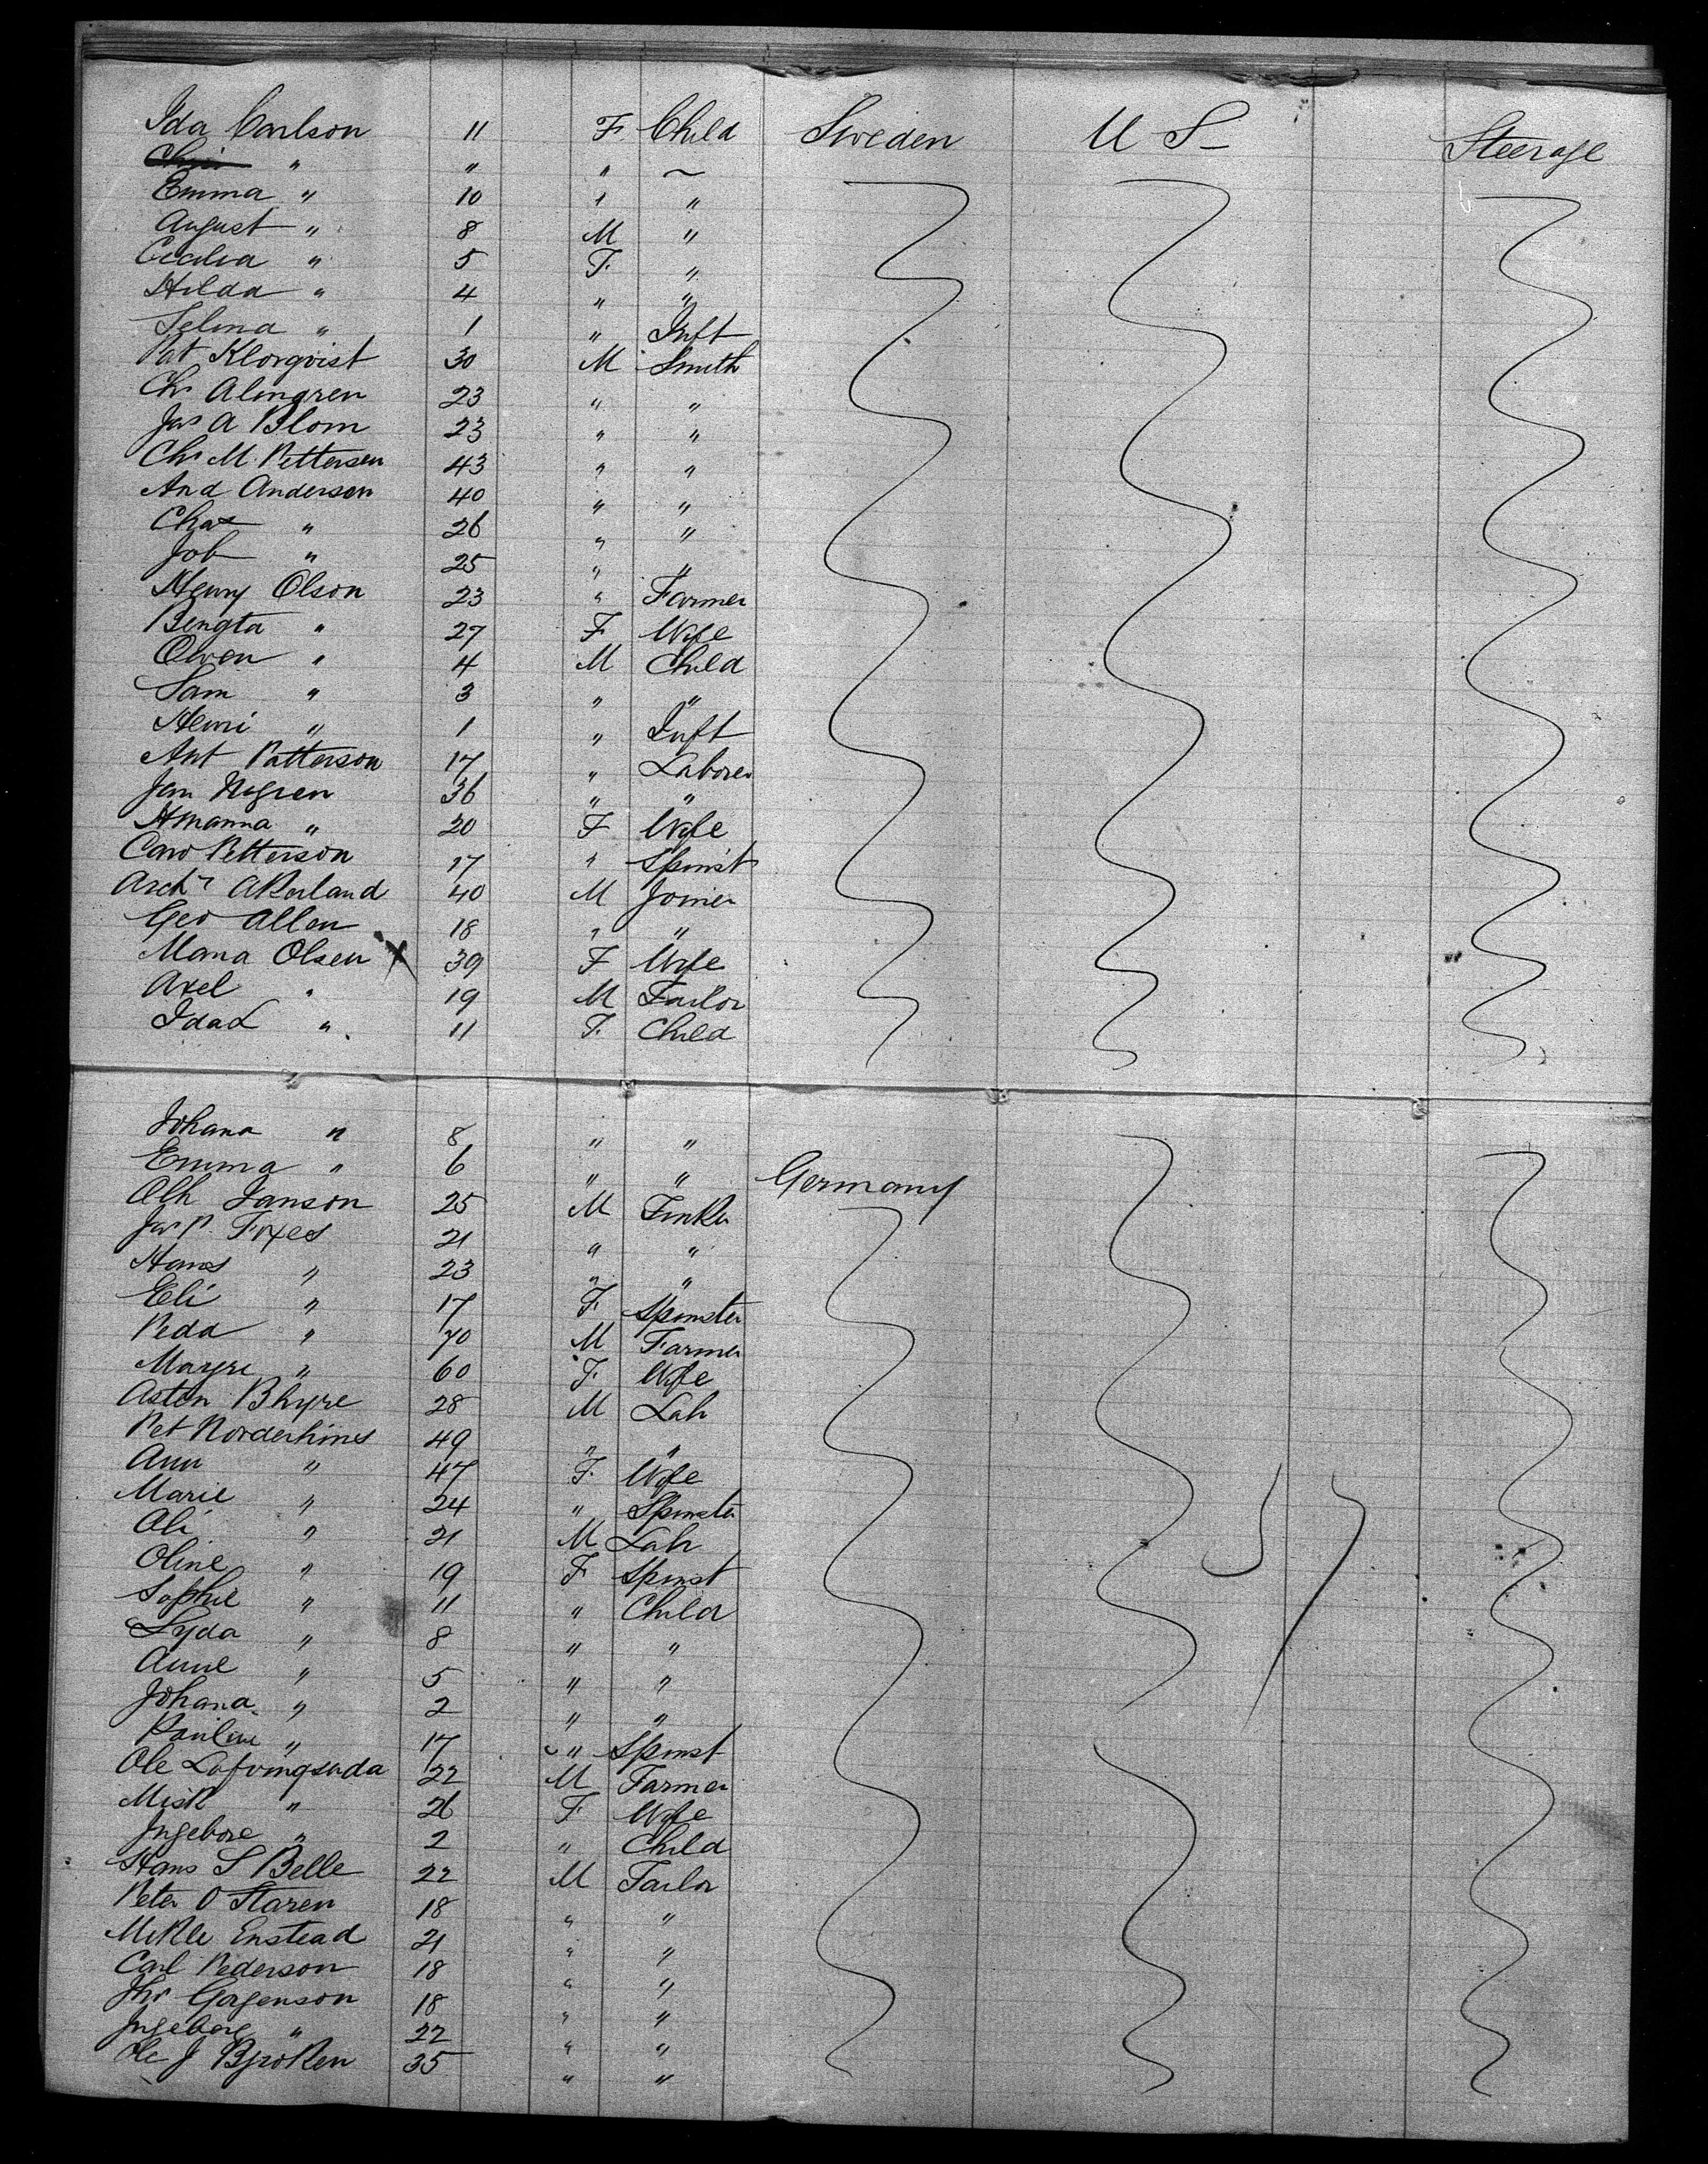 Ida Carlson 11 F Child Sweden U S Steerage
" " " ~
Emma " 10 " "
August " 8 M "
Cecelia " 5 F. "
Hilda " 4 " "
Selma " 1 " Inft
Pat Klorqvist 30 M Smith
Chs Almgren 23 " "
Jas A Blom 23 " "
Chs M. Pettersen 43 " "
And Andersen 40 " "
Chas " 26 " "
Job " 25 " "
Henry Olson 23 " Farmer
Bengta " 27 F Wife
Owen " 4 M Child
Sam " 3 " "
Henri " 1 " Inft
Ant Patterson 17 " Laborer
Jan Nogren 36 " "
Amanna " 20 F Wife
Caro Petterson 17 " Spinst
Archd Akerland 40 M Joiner
Geo Allen 18 " "
Mana Olsen X 39 F Wife
Axel " 19 M Tailor
Ida L " 11 F. Child
Johana " 8 " "
Emma " 6 " " Germany
Olh Janson 25 M Tinker
Jas P. Foxes 21 " "
Hans " 23 " "
Eli " 17 F. Spinster
Peda " 70 M Farmer
Margre " 60 F. Wife
Aston Bhyre 28 M Lab
Pet Norderhimes 49 " "
Ann " 47 F. Wife
Marie " 24 " Spinster
Oli " 21 M Lab
Oline " 19 F Spinst
Sophie " 11 " Child
Lyda " 8 " "
Anne " 5 " "
Johana " 2 " "
Pauline " 17 " Spinst
Ole 22 M Farmer
Misk " 26 F Wife
Ingebore " 2 " Child
Hans S Belle 22 M Tailor
Peter O Staren 18 " "
Mikle Enstead 21 " "
Carl Pederson 18 " "
Jhs Gorgenson 18 " "
Ingeborg " 22 " "
Ole J Bjroken 35 " "